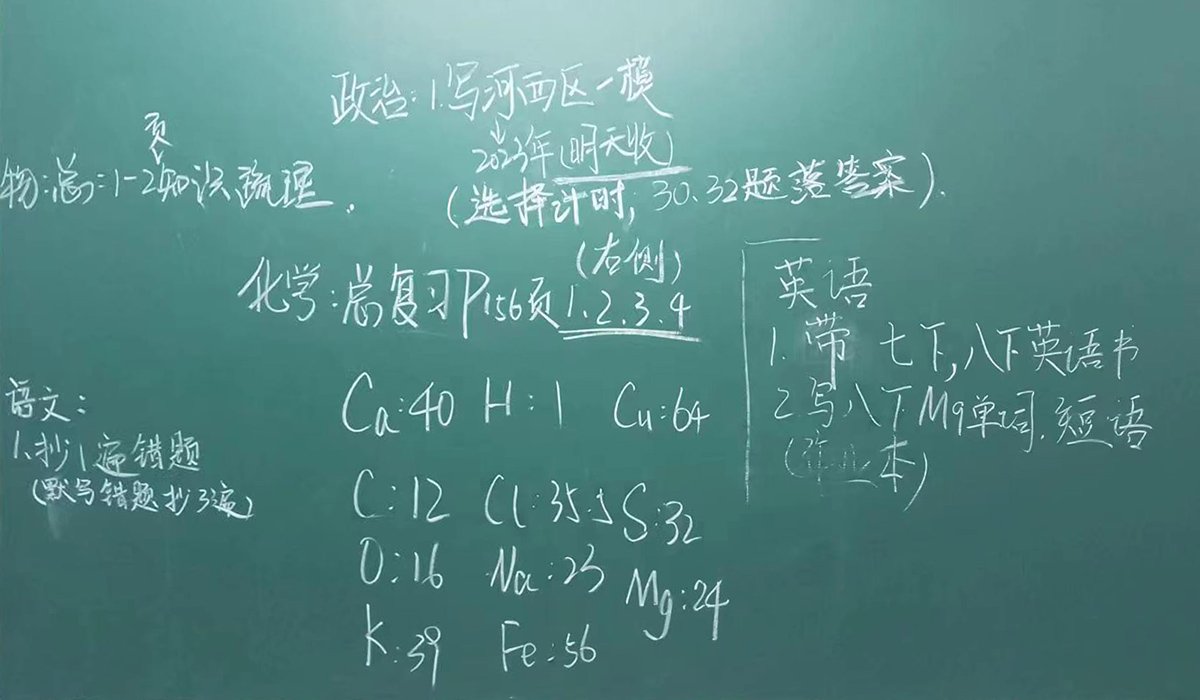 政治:1.写河西区一模
2023年(明天收)
(选择计时,30.32题落答案).
页
物:总:1-2知识梳理.
(右侧)
化学:总复习P156页1.2.3.4
Ca:40 H:1 Cu:64
C:12 Cl:35.5 S:32
O:16 Na:23 Mg:24
K:39 Fe:56
语文:
1.抄1遍错题
(默写错题抄3遍)
英语
1.带七下,八下英语书
2.写八下M9单词.短语
(作业本)